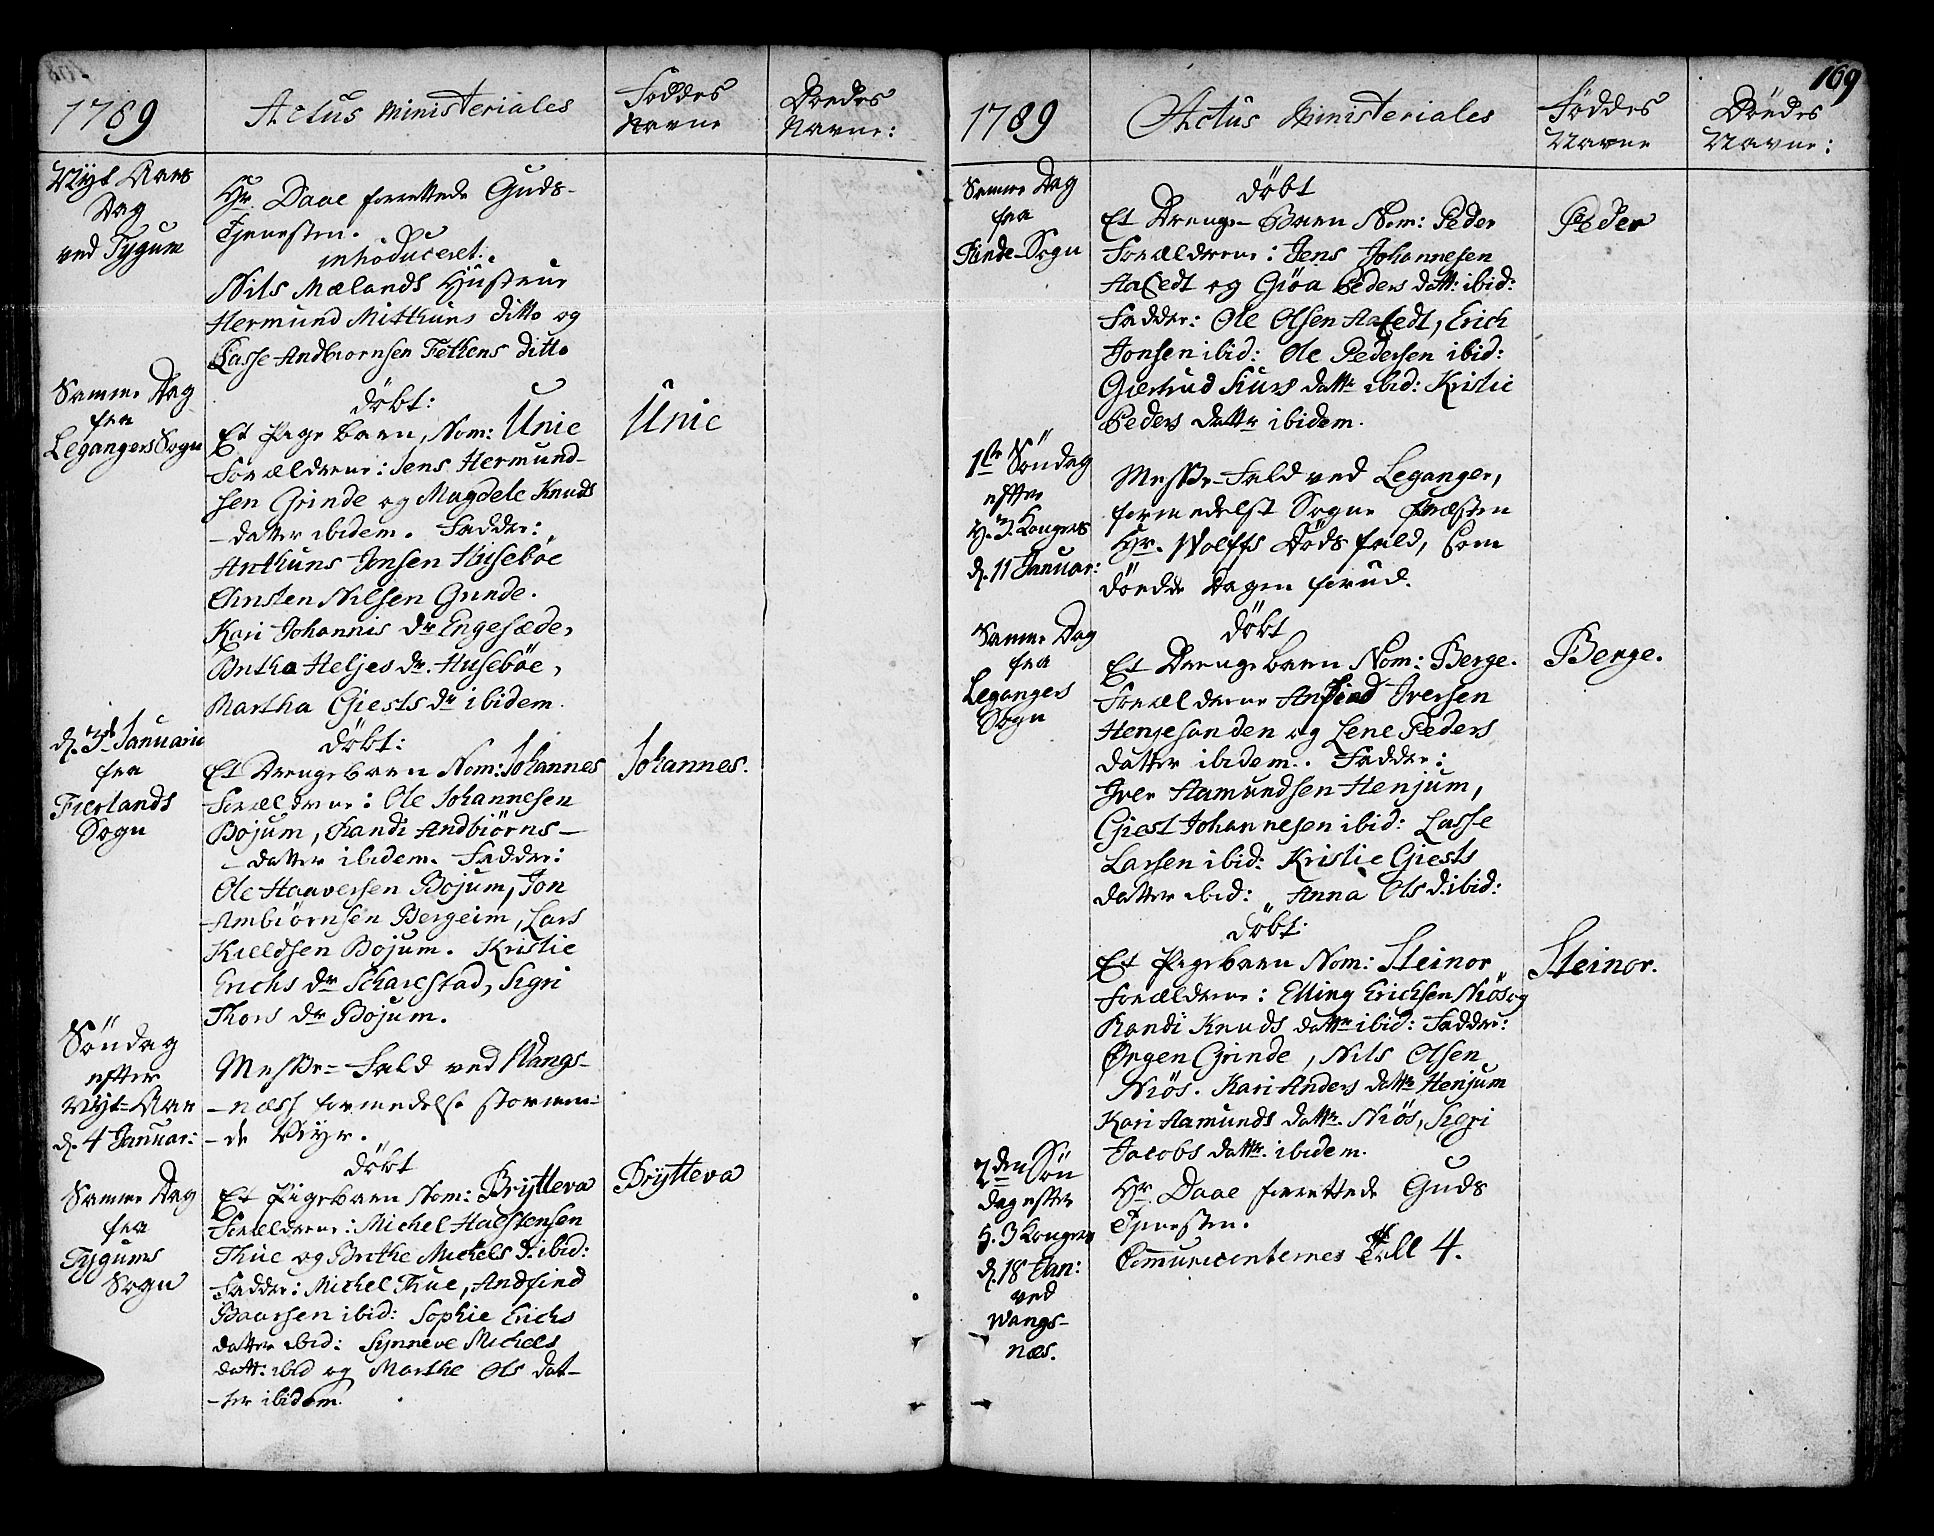 1789
Actus Ministeriales
Föddes
Navne
Doedes
Navne:
Nyt Aars
Dag
ved Tygum
Hr. Daae forrettede Guds-
Tjenesten.
introduceret:
Nils Mælands Hustrue
Hermund Mithuns ditto og
Lasse Andbiornsen Fethens ditto
Samme Dag
fra
Legangers Sogn
döbt:
Et Pige barn, Nom: Unie
Unie
Forældrene: Jens Hermund-
sen Grinde og Magdele Knuds
-datter ibidem. Fadder:
Anthuns Jonsen Huseböe
Christen Nilsen Grinde.
Kari Johannis dr Engesæde,
Britha Heljes dr. Huseböe,
Martha Giests dr ibidem.
d. 3d Januarii
fra
Fierlands
Sogn
döbt:
Et Drengebarn Nom: Johannes
Johannes.
Forældrene: Ole Johannesen
Bojum, Randi Andbiörns-
-datter ibidem. Fadder:
Ole Haaversen Bojum, Jon
Ambiörnsen Bergeim, Lars
Kieldsen Bojum. Kristie
Erichs dr Scharestad, Sigri
Thors dr Bojum.
Söndag
efter
Nyt-Aar
d. 4 Januar:
Messe-Fald ved Wangs-
-næss formedelst stormen-
-de Veyr.
Samme Dag
fra
Tygums
Sogn
döbt
Et Pigebarn Nom: Brytteva
Brytteva
Forældrene: Michel Halstensen
Thue og Brithe Michels d: ibid:
Fadder: Michel Thue, Andfind
Baarsen ibid: Sophie Erichs
datter ibid: Synneve Michels
datt: ibid og Marthe Ols dat-
-ter ibidem.
169
1789
Actus Ministeriales
Föddes
Navne
Döedes
Navne:
Samme Dag
fra
Rinde-Sogn
döbt
Et Drenge-Barn Nom: Peder
Peder
Forældrene: Jens Johannesen
Aafedt og Giöa Peders datt: ibid:
Fadder: Ole Olsen Aafedt, Erich
Jonsen ibid: Ole Pedersen ibid:
Giertrud Siurs dattr ibid: Kristie
Peders dattr ibidem.
1ste Söndag
efter
H. 3. Konger
d. 11 Januar:
Messe-Fald ved Leganger,
formedelst Sogne Præsten
Hr. Wolffs Döds fald, som
döede Dagen forud.
Samme Dag
fra
Legangers
Sogn
döbt
Et Drengebarn Nom: Berge.
Berge.
Forældrene Anfind Iversen
Henjesanden og Lene Peders
datter ibidem. Fadder:
Iver Aamundsen Henjum,
Giest Johannesen ibid: Lasse
Larsen ibid: Kristie Giests
datter ibid: Anna Ols d: ibid:
döbt:
Et Pigebarn Nom: Steinor
Steinor.
Forældrene: Elling Erichsen Niös og
Randi Knuds dattr ibid: Fadder:
Ørgen Grinde, Nils Olsen
Niös. Kari Anders dattr Henjum
Kari Aamunds dattr. Niös, Sigri
Jacobs dattr. ibidem.
2den Sön
dag efter
H. 3 Konger
d. 18 Jan:
ved
Wangs-
næs.
Hr. Daae forrettede Guds
Tjenesten.
Communicanternes Tall 4.